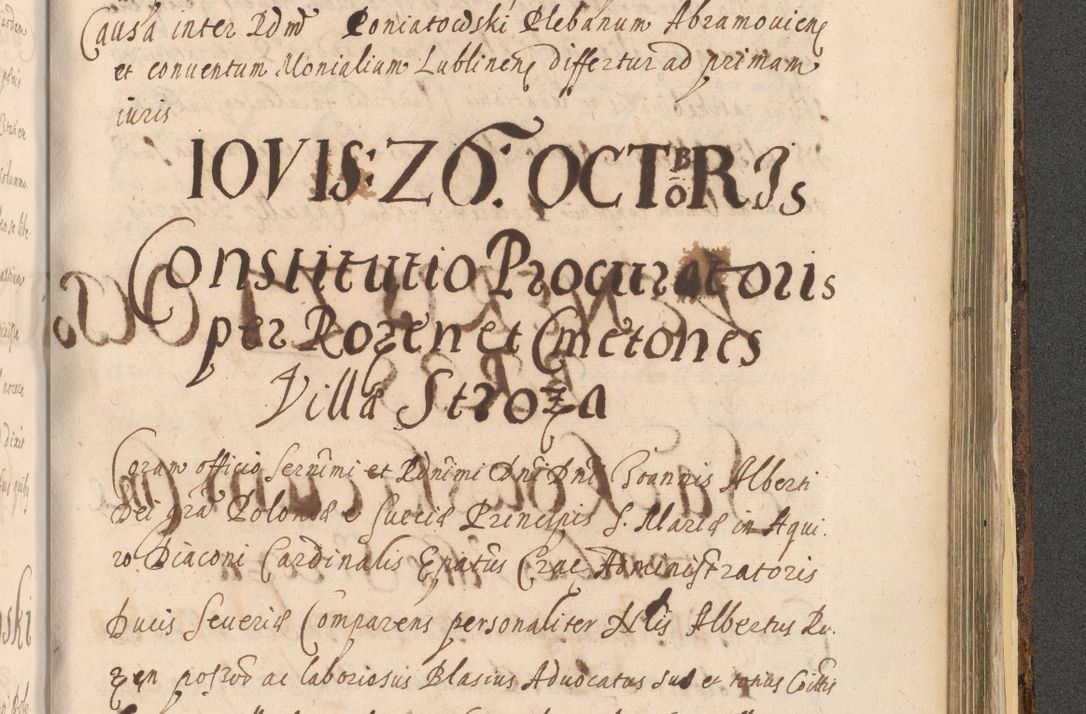 Causa inter Rdm̃ Poniatowski Plebanum Abramovien̄
et conventum Monialium Lublinen̄ differtur ad primam
iuris
IOVIS: Z0̃: OCTOBRIS
Constitutio Procuratoris
per Rozen et Cmetones
Villæ Stroża
Coram officio Sernĩmi et Rdnĩmi Dnĩ Dnĩ Joannis Alberti
Dei grã Poloniæ e Sueciæ Principis S. Mariæ in Aqui.
ro Diaconi Cardinalis Epatũs Crac Administratoris
Ducis Severiæ Comparens personaliter Nlis Albertus Ro.
zen ac laboriosus Blasius Advocatus suo et totius Coĩtis